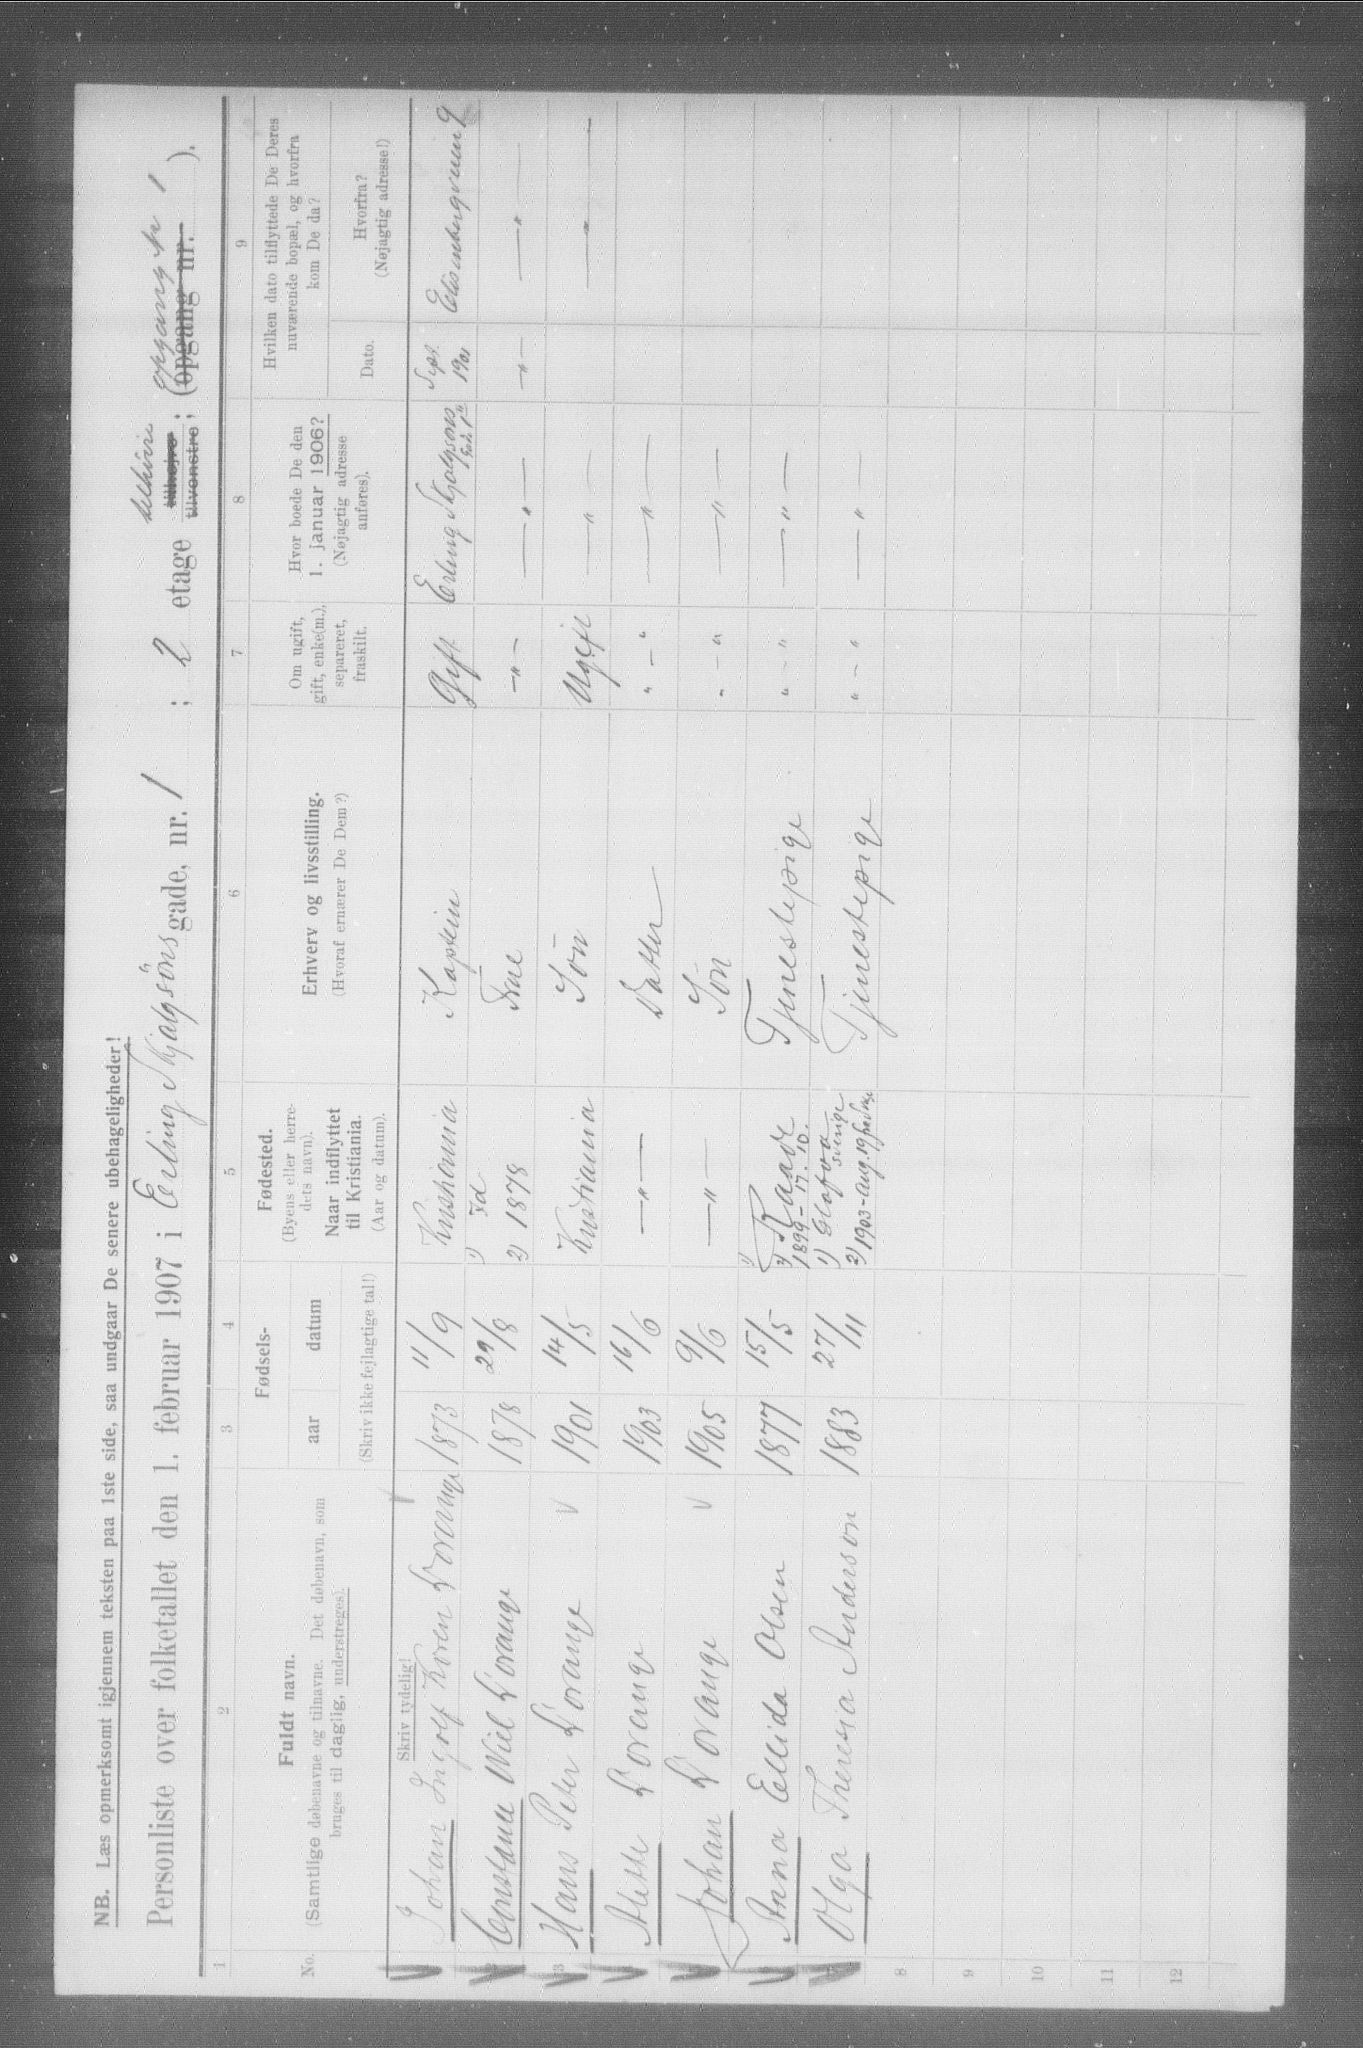 NB. Læs opmerksomt igjennem teksten paa 1ste side, saa undgaar De senere ubehageligheder!
Personliste over folketallet den 1. februar 1907 i Erling Skjalgsöns gade, nr. 1 ; 2 etage tilhöire tilhøjre tilvenstre ; opgang nr 1 (opgang nr. ).
1 2 3 4 5 6 7 8 9
No.
Fuldt navn.
(Samtlige døbenavne og tilnavne. Det døbenavn, som
bruges til daglig, understreges).
Fødsels-
aar datum
(Skriv ikke fejlagtige tal!)
Fødested.
(Byens eller herre-
dets navn).
Naar indflyttet
til Kristiania.
(Aar og datum).
Erhverv og livsstilling.
(Hvoraf ernærer De Dem?)
Om ugift,
gift, enke(m.),
separeret,
fraskilt.
Hvor boede De den
1. januar 1906?
(Nøjagtig adresse
anføres).
Hvilken dato tilflyttede De Deres
nuværende bopæl, og hvorfra
kom De da?
Dato.
Hvorfra?
(Nøjagtig adresse!)
Skriv tydelig!
Johan Ingolf Koren Dorenge 1873 11/9 Kristiania Kaptein Gift Erling Skjalgsöns Sept. 1901
Constance Wiel Dorange 1878 29/8 2) 1878 Frue —"— —"— —"— —"—
3 Hans Peter Dorange 1901 14/5 Kristiania Sön Ugift —"— —"—
Mette Dorenge 1903 16/6 —"— Datter "—" —"—
Johan Dorange 1905 9/6 —"— Sön "—" —"—
Anna Ellida Olsen 1877 15/5 1) Raade 2) 1899 - 17. 10. Tjenestepige "—" —"—
Olga Theresia Anderson 1883 27/11 1) Sverige 2) 1903 - aug. 19 Tjenestepige "—" —"—
8
9
10
11
12